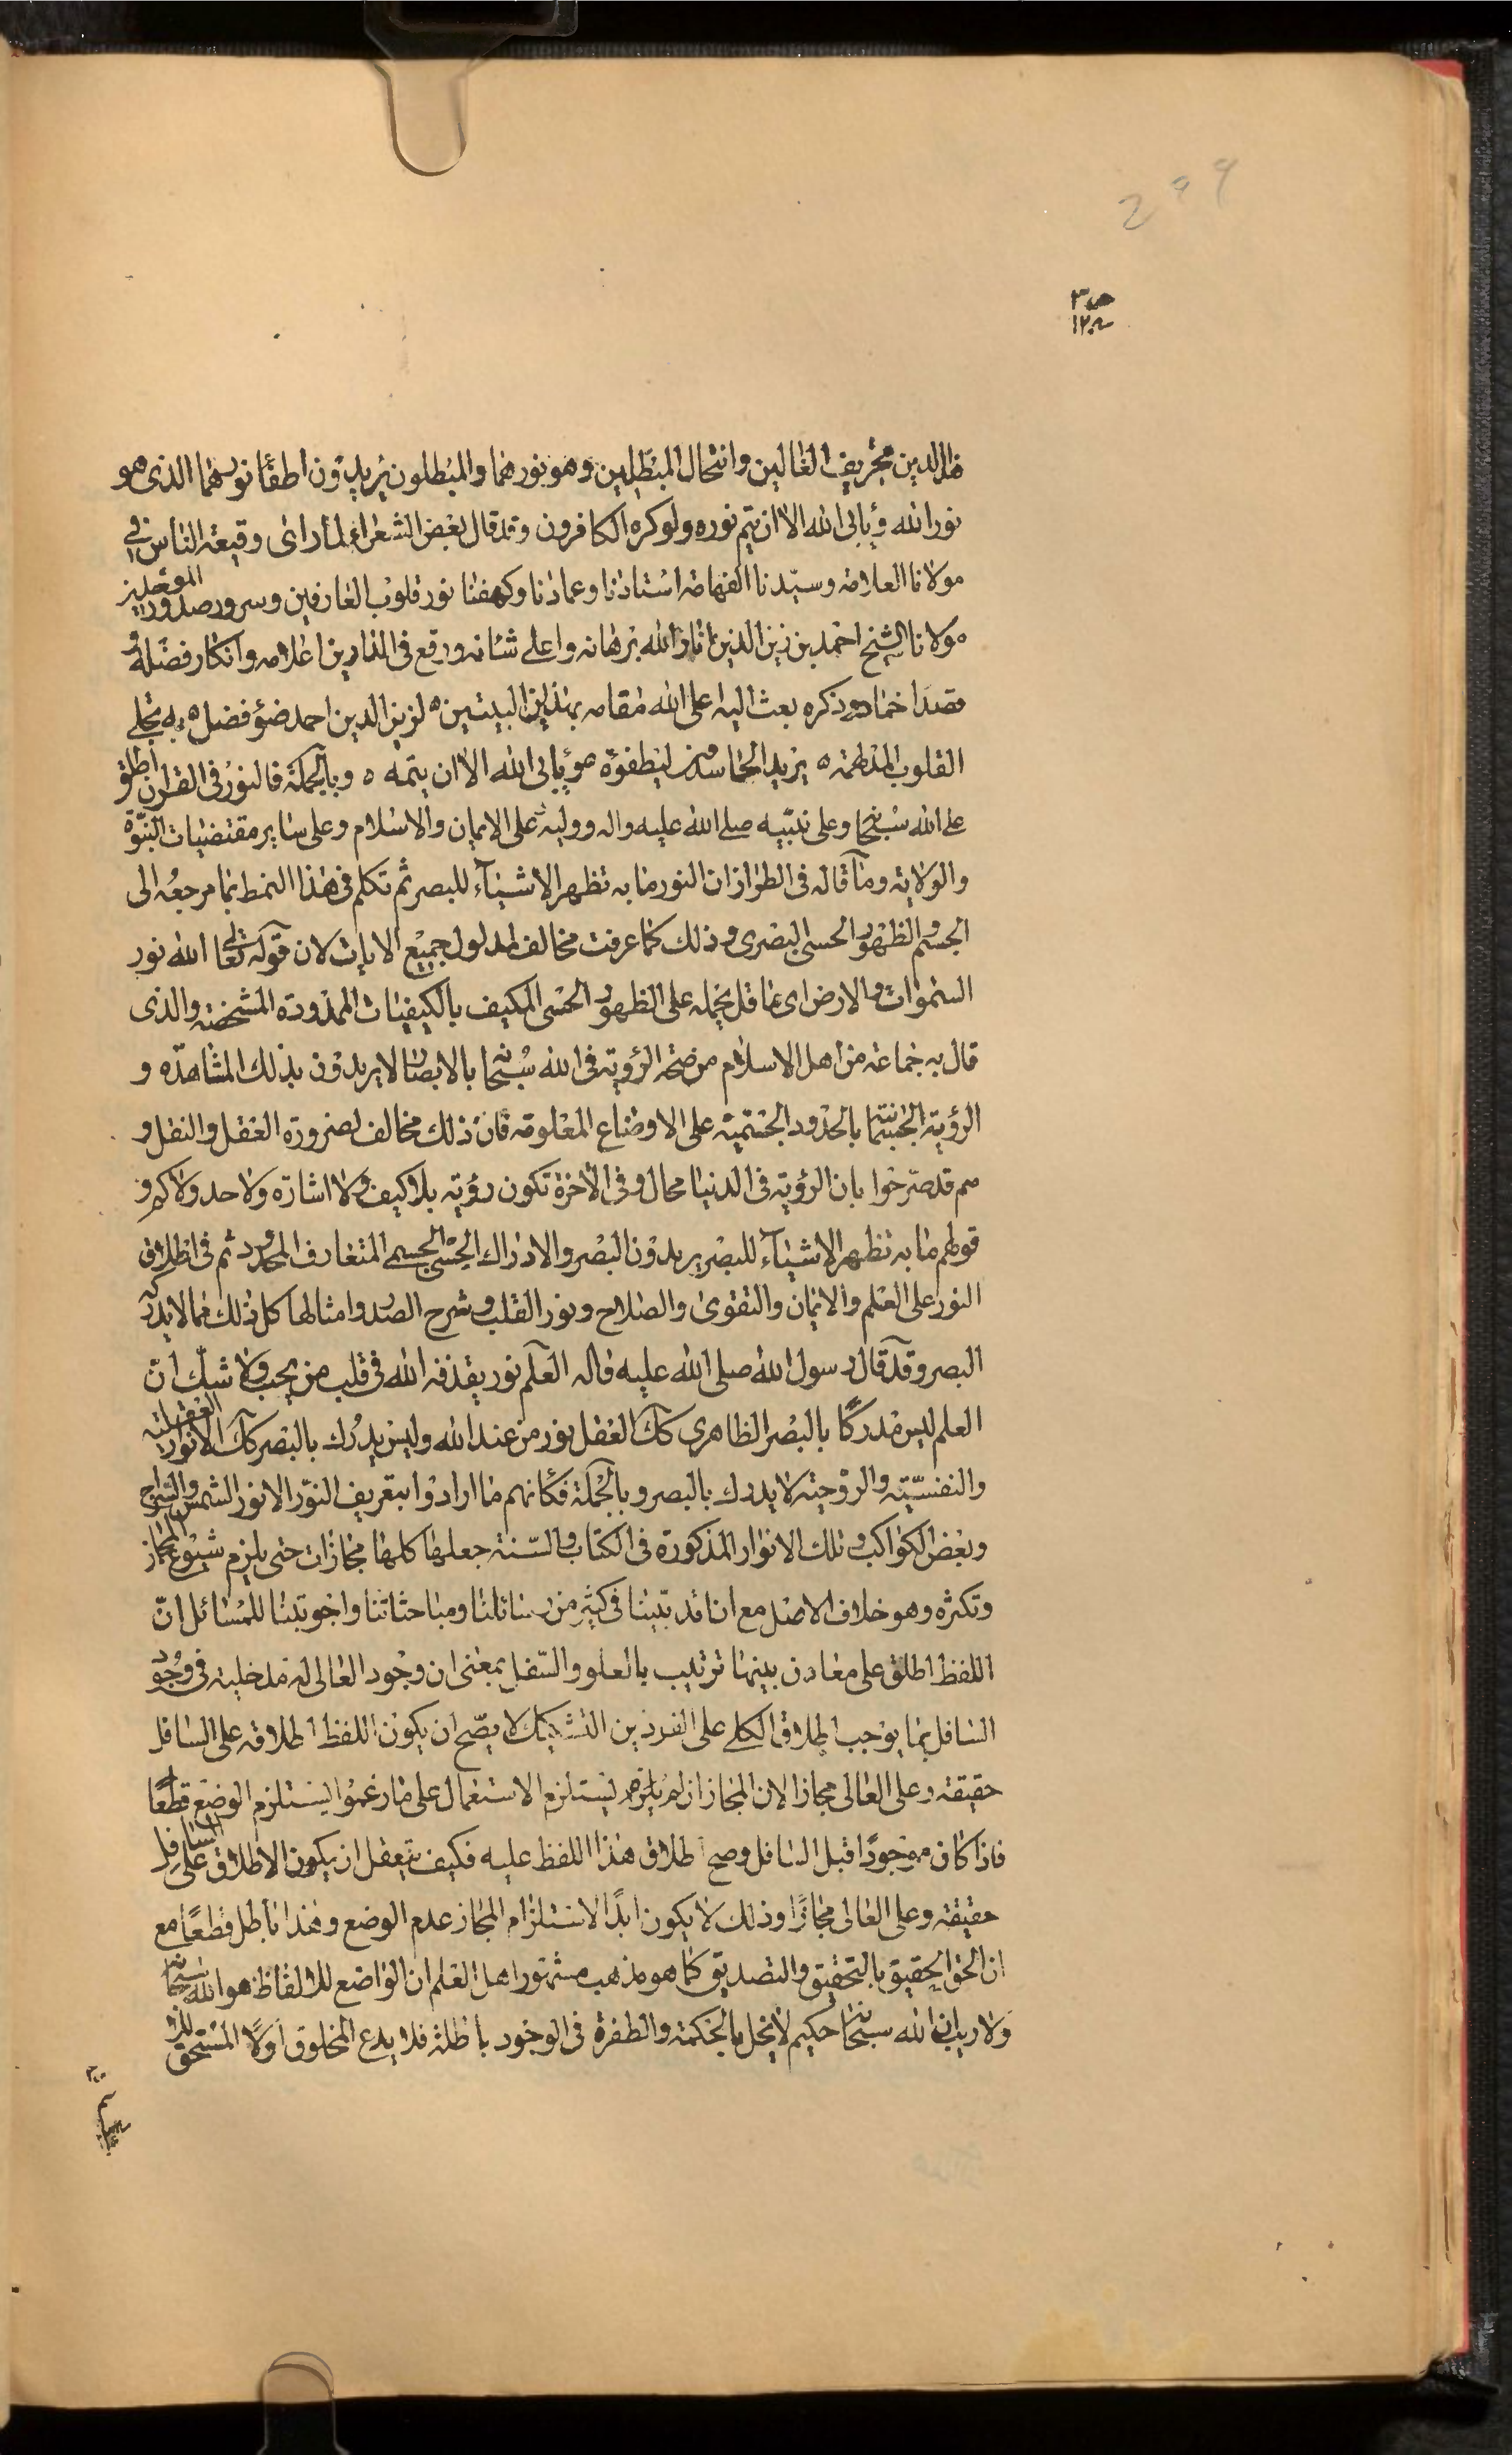 299
هذا الدين تحريف الغالين وانتحال المبطلين وهو نورهما والمبطلون يريدون اطفاء نورهما الذى هو
نور الله ويأبى الله الا ان يتم نوره ولو كره الكافرون وقد قال بعض الشعراء لما رأى وقيعة الناس فى
مولانا العلامة وسيدنا الفهامة استادنا وعمادنا وكهفنا نور قلوب العارفين وسرور صدور الموحدين
مولانا الشيخ احمد بن زين الدين انار الله برهانه واعلى شأنه ورفع فى الدارين اعلامه وانكار فضله و
قصد اخماد ذكره بعث اليه اعلى الله مقامه بهذين البيتين ٥ لزين الدين احمد ضوء فضل ٥ به تجلى
القلوب المدلهمة ٥ يريد الحاسدون ليطفؤه ويأبى الله الا ان يتمه ٥ وبالجملة فالنور فى القران اطلق
على الله سبحانه وعلى نبيه صلى الله عليه واله ووليه وعلى الايمان والاسلام وعلى ساير مقتضيات النبوة
والولاية وما قاله فى الطراز ان النور ما به تظهر الاشياء للبصر ثم تكلم فى هذا النمط بما مرجعه الى
الجسم والظهور الحسى البصرى وذلك كما عرفت مخالف لمدلول جميع الايات لان قوله تعالى الله نور
السموات والارض اى عاقل يحمله على الظهور الحسى المكيف بالكيفيات المحدودة المشخصة والذى
قال به جماعة من اهل الاسلام من صحة الرؤية فى الله سبحانه بالابصار لا يريدون بذلك المشاهدة و
الرؤية الجسمانية بالحدود الجسمية على الاوضاع المعلومة فان ذلك مخالف لضرورة العقل والنقل و
هم قد صرحوا بان الرؤية فى الدنيا محال وفى الاخرة تكون رؤية بلا كيف ولا اشارة ولا حد ولا كم و
قولهم ما به تظهر الاشياء للبصر يريدون البصر والادراك الحسى الجسمى المتعارف المحدود ثم فى اطلاق
النور على العلم والايمان والتقوى والصلاح ونور القلب وشرح الصدر وامثالها كل ذلك مما لا يدركه
البصر وقد قال رسول الله صلى الله عليه واله العلم نور يقذفه الله فى قلب من يحب ولا شك ان
العلم ليس مدركا بالبصر الظاهرى كك العقل نور من عند الله وليس يدرك بالبصر كك الانوار العقلية
والنفسية والروحية لا يدرك بالبصر وبالجملة فكأنهم ما ارادوا بتعريف النور الا نور الشمس والسراج
وبعض الكواكب وتلك الانوار المذكورة فى الكتاب والسنة جعلها كلها مجازات حتى يلزم شيوع المجاز
وتكثره وهو خلاف الاصل مع انا قد بينا فى كثير من رسائلنا ومباحثاتنا واجوبتنا للمسائل ان
اللفظ اطلق على معادن بينها ترتيب بالعلو والسفل بمعنى ان وجود العالى له مدخلية فى وجود
السافل بما يوجب اطلاق الكلى على الفردين التشكيك لا يصح ان يكون اللفظ اطلاقه على السافل
حقيقة وعلى العالى مجازا لان المجاز ان لم يلزم يستلزم الاستعمال على ما زعموا يستلزم الوضع قطعا
فاذا كان موجودا قبل السافل وصح اطلاق هذا اللفظ عليه فكيف يتعقل ان يكون الاطلاق على السافل
حقيقة وعلى العالى مجازا وذلك لا يكون ابدا لاستلزام المجاز عدم الوضع وهذا باطل قطعا مع
ان الحق الحقيق بالتحقيق والتصديق كما هو مذهب مشهور اهل العلم ان الواضع للالفاظ هو الله سبحانه
ولا ريب ان الله سبحانه حكيم لا يخل بالحكمة والطفرة فى الوجود باطلة فلا يدع المخلوق اولا المستحق